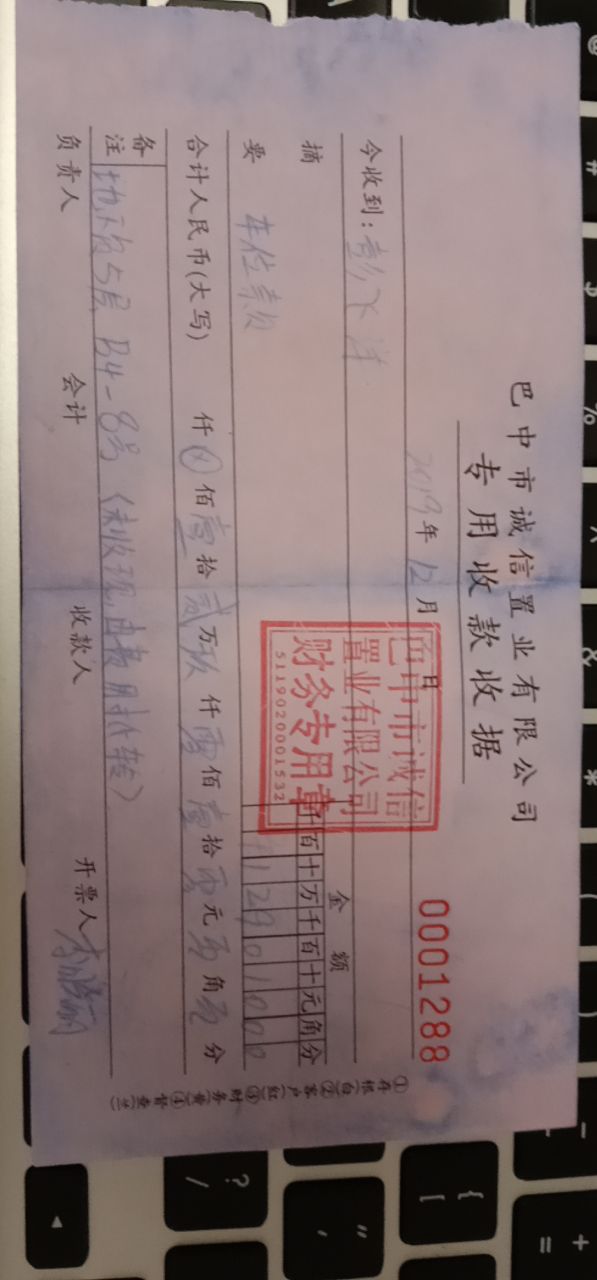 巴中市诚信置业有限公司
专用收款收据
0001288
2019年12月 日
今收到:彭飞洋
摘要 金额
千百十万千百十元角分
车位款
¥12901000
巴中市诚信
置业有限公司
财务专用章
5119020001532
合计人民币(大写) 仟⊗佰壹拾贰万玖仟零佰壹拾零元零角零分
备注 地下负5层 B4-8号(未收现,由费用抵转)
负责人 会计 收款人 开票人
①存根(白)②客户(红)③财务(黄)④督查(兰)